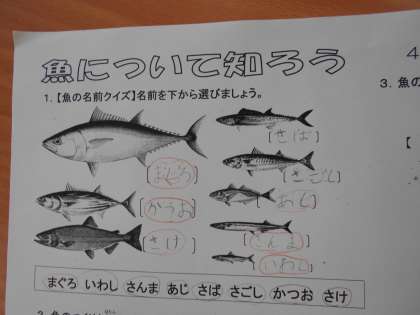 魚について知ろう
1.【魚の名前クイズ】名前を下から選びましょう。
[さば]
[まぐろ]
[さごし]
[かつお]
[あじ]
[さけ]
[さんま]
[いわし]
まぐろ いわし さんま あじ さば さごし かつお さけ
4
3. 魚の
【